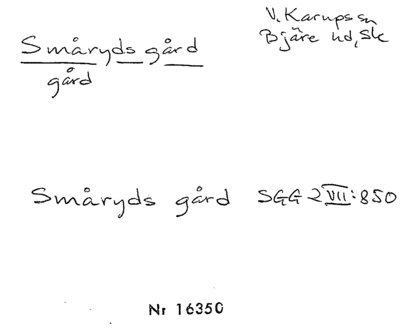 V. Karups sn
Bjäre hd, Sk
Småryds gård
gård
Småryds gård SGG 2 VII:850
Nr 16350